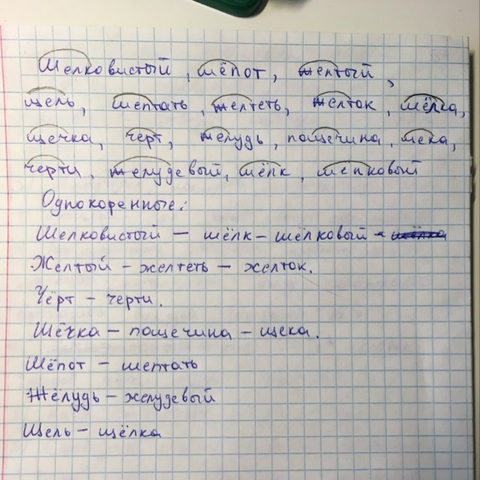 Шелковистый, шёпот, желтый,
щель, шептать, желтеть, желток, щёлка,
щечка, черт, желудь, пощечина, щека,
черти, желудевый, шёлк, шелковый
Однокоренные:
Шелковистый – шёлк – шёлковый -
Желтый – желтеть – желток.
Чёрт – черти.
Щёчка – пощечина – щека.
Шёпот – шептать
Жёлудь – желудевый
Щель – щёлка